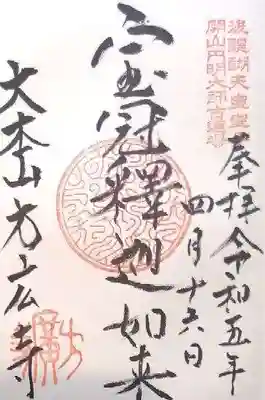 後醍醐天皇皇子
開山円明大師旧蹟
奉拝 令和五年
四月十六日
宝冠釋迦如来
大本山方広寺